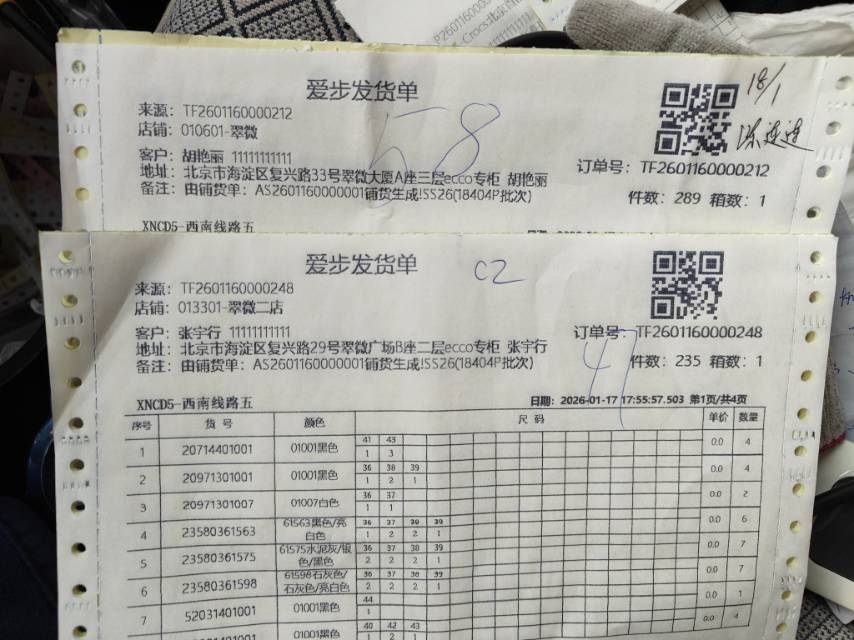 爱步发货单
来源: TF2601160000212
店铺: 010601-翠微
客户: 胡艳丽 11111111111
地址: 北京市海淀区复兴路33号翠微大厦A座三层ecco专柜 胡艳丽
备注: 由铺货单: AS2601160000001铺货生成!SS26(18404P批次)
58
18/1
订单号: TF2601160000212
件数: 289 箱数: 1
XNCD5-西南线路五
爱步发货单
C2
来源: TF2601160000248
店铺: 013301-翠微二店
客户: 张宇行 11111111111
地址: 北京市海淀区复兴路29号翠微广场B座二层ecco专柜 张宇行
备注: 由铺货单: AS2601160000001铺货生成!SS26(18404P批次)
订单号: TF2601160000248
件数: 235 箱数: 1
47
XNCD5-西南线路五
日期: 2026-01-17 17:55:57.503 第1页/共4页
序号 货 号 颜色 尺 码 单价 数量
41 43
1 20714401001 01001黑色 1 3 0.0 4
36 38 39
2 20971301001 01001黑色 1 2 1 0.0 4
36 37
3 20971301007 01007白色 1 1 0.0 2
36 37 38 39
4 23580361563 61563黑色/亮白色 1 2 2 1 0.0 6
36 37 38 39
5 23580361575 61575水泥灰/银色/黑色 2 2 2 1 0.0 7
36 37 38 39
6 23580361598 61598石灰色/石灰色/亮白色 2 2 2 1 0.0 7
44
7 52031401001 01001黑色 1 0.0 1
40 42 43
01001黑色 1 2 1 0.0 4